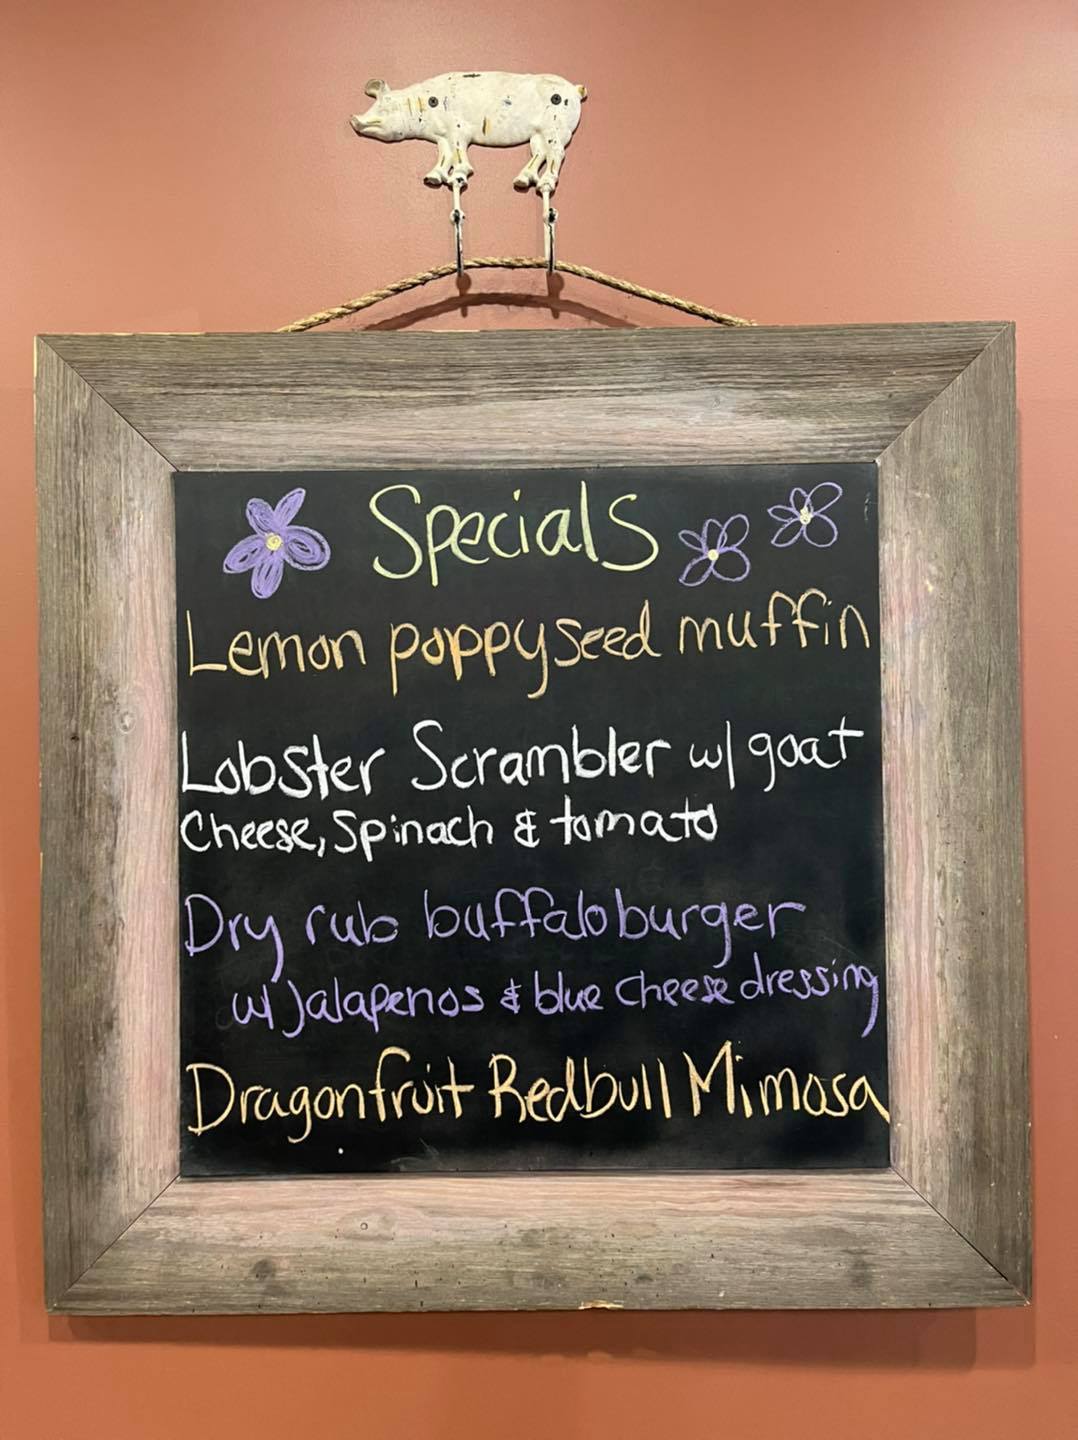 Specials
Lemon poppyseed muffin
Lobster Scrambler w/ goat
Cheese, Spinach & tomato
Dry rub buffalo burger
w/ Jalapenos & blue cheese dressing
Dragonfruit Redbull Mimosa